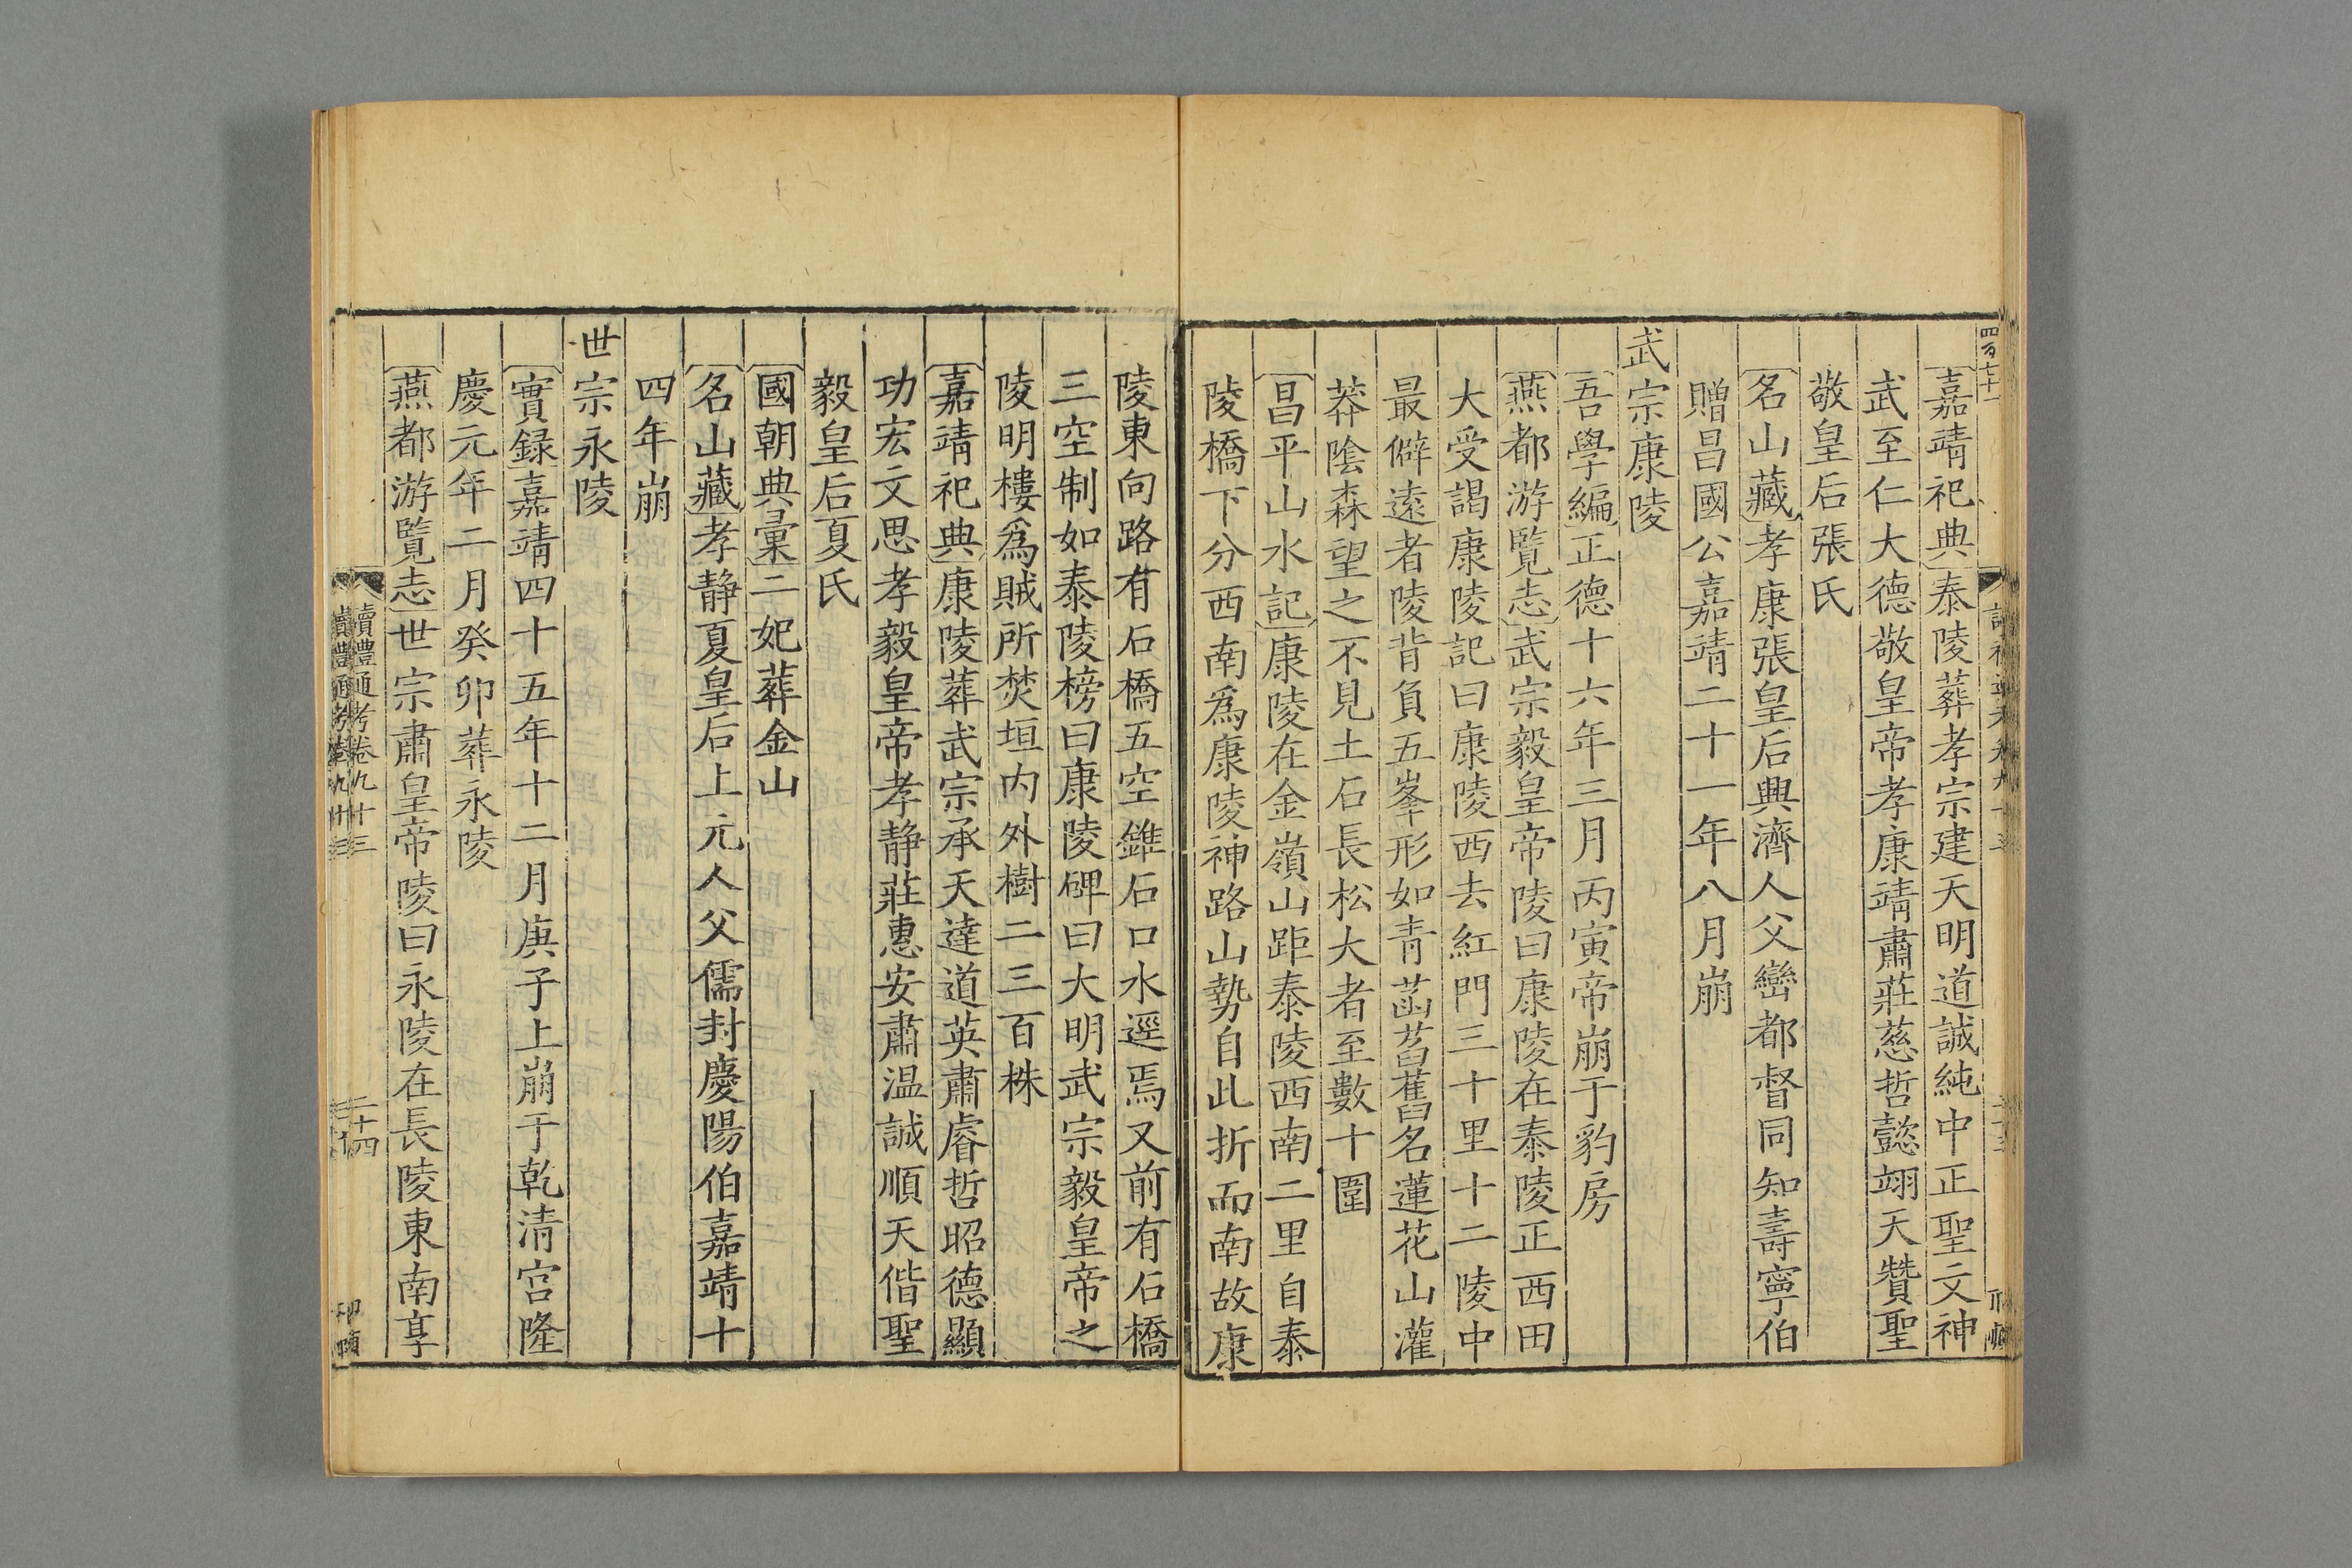 四百七十一
嘉靖祀典泰陵葬孝宗建天明道誠純中正聖文神
武至仁大德敬皇帝孝康靖肅莊慈哲懿翊天贊聖
敬皇后張氏
名山藏孝康張皇后興濟人父巒都督同知壽寧伯
贈昌國公嘉靖二十一年八月崩
武宗康陵
吾學編正德十六年三月丙寅帝崩于豹房
燕都游覽志武宗毅皇帝陵曰康陵在泰陵正西田
大受謁康陵記曰康陵西去紅門三十里十二陵中
最僻遠者陵背負五峯形如青菡萏舊名蓮花山灌
莽陰森望之不見土石長松大者至數十圍
昌平山水記康陵在金嶺山距泰陵西南二里自泰
陵橋下分西南爲康陵神路山勢自此折而南故康
陵東向路有石橋五空錐石口水逕焉又前有石橋
三空制如泰陵榜曰康陵碑曰大明武宗毅皇帝之
陵明樓爲賊所焚垣内外樹二三百株
嘉靖祀典康陵葬武宗承天達道英肅睿哲昭德顯
功宏文思孝毅皇帝孝静莊惠安肅温誠順天偕聖
毅皇后夏氏
國朝典彙二妃葬金山
名山藏孝静夏皇后上元人父儒封慶陽伯嘉靖十
四年崩
世宗永陵
實録嘉靖四十五年十二月庚子上崩于乾清宫隆
慶元年二月癸卯葬永陵
燕都游覽志世宗肅皇帝陵曰永陵在長陵東南享
讀禮通考卷九十三
二十四